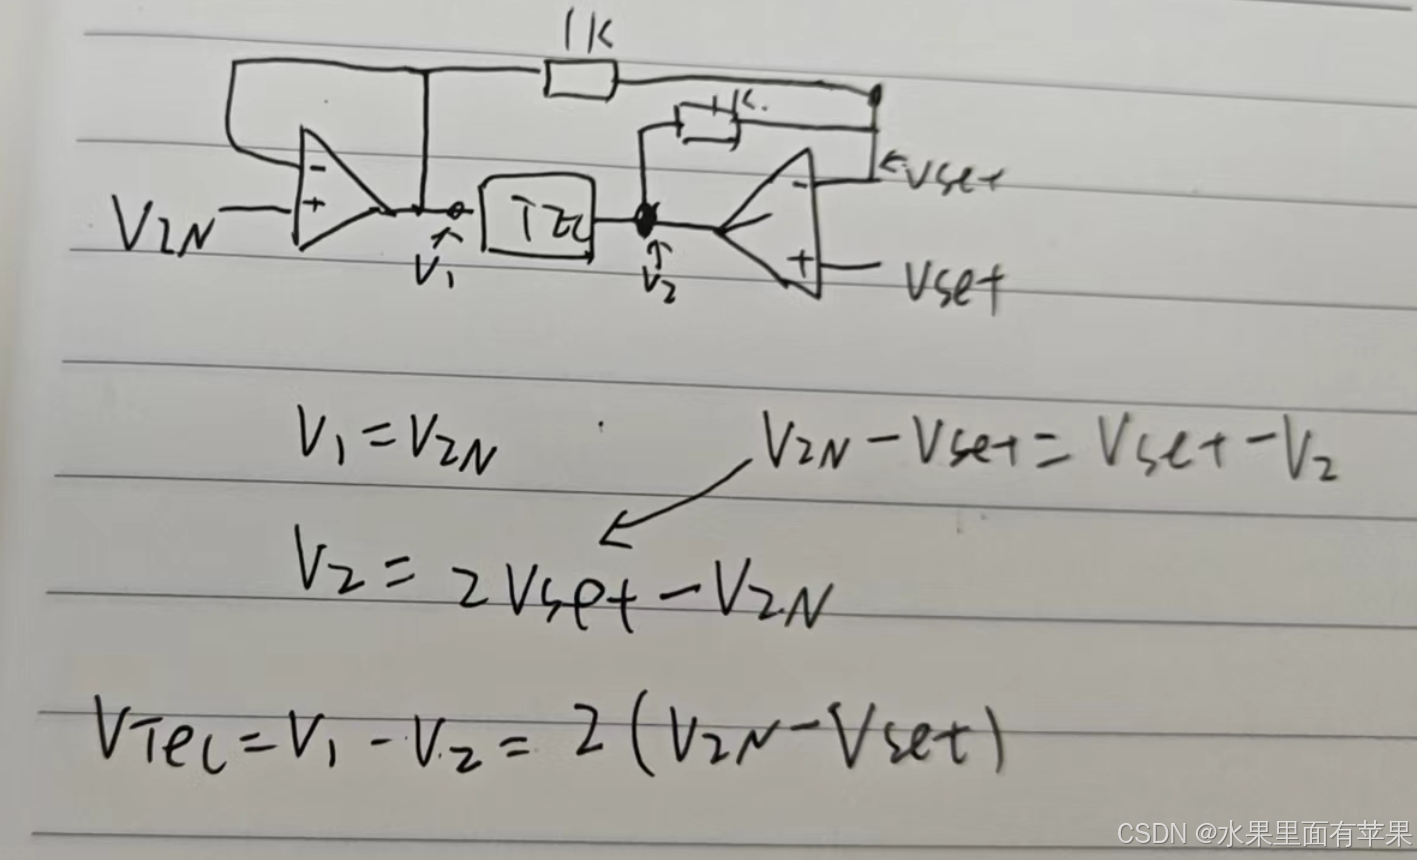 1K
1K.
Vset
V2N
TEC
V1
V2
Vset
V1 = V2N
V2N - Vset = Vset - V2
V2 = 2Vset - V2N
VTec = V1 - V2 = 2(V2N - Vset)
CSDN @水果里面有苹果